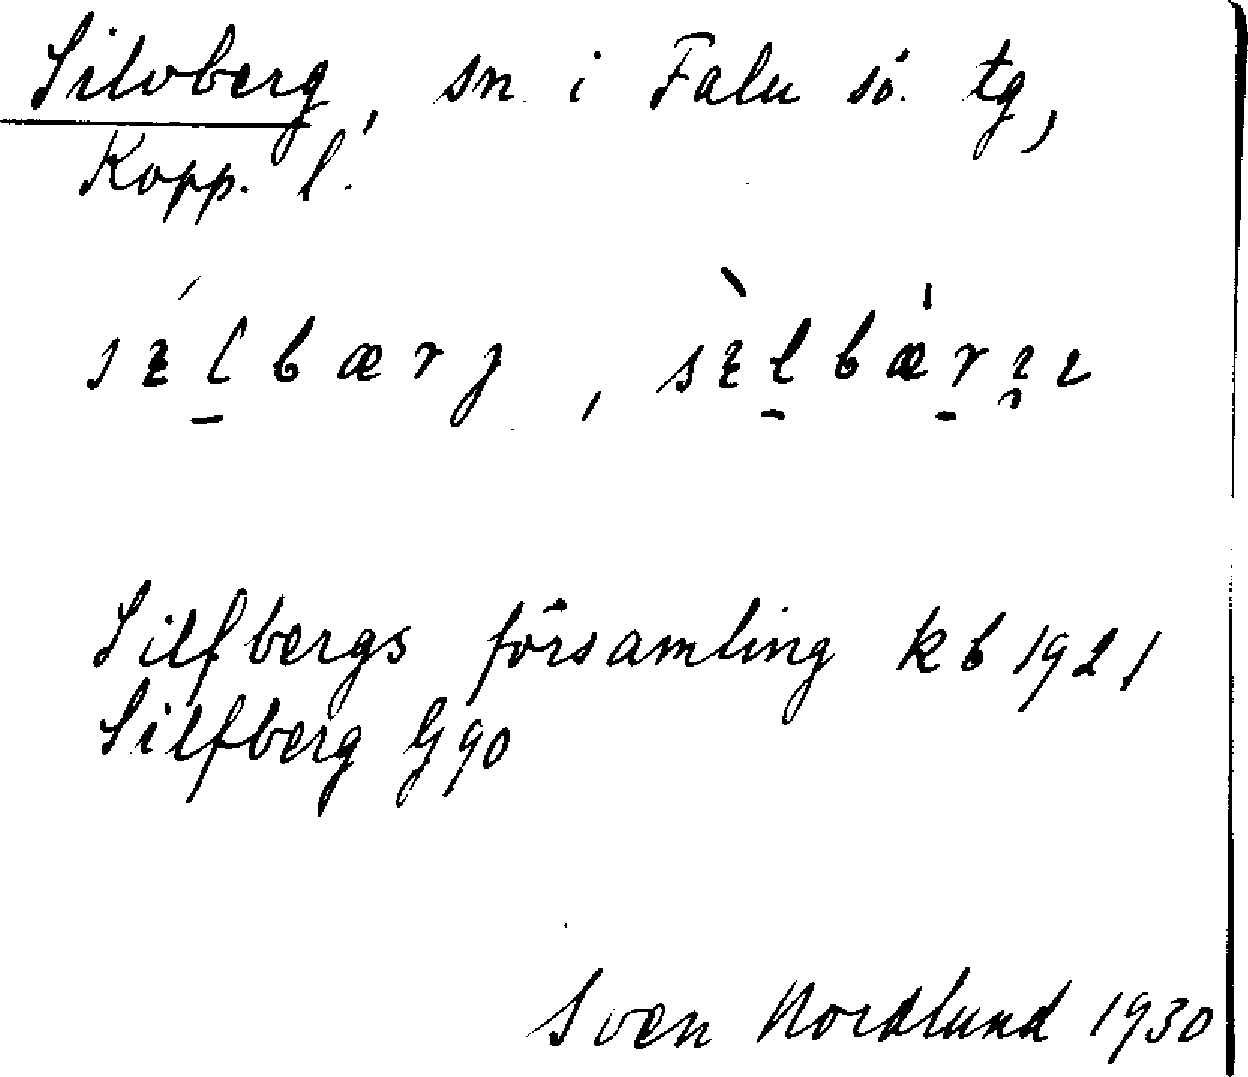 Silvberg, sn i Falu sö. tg,
Kopp. l.
Silfbergs församling kb 1921
Silfberg G 90
Sven Nordlund 1930